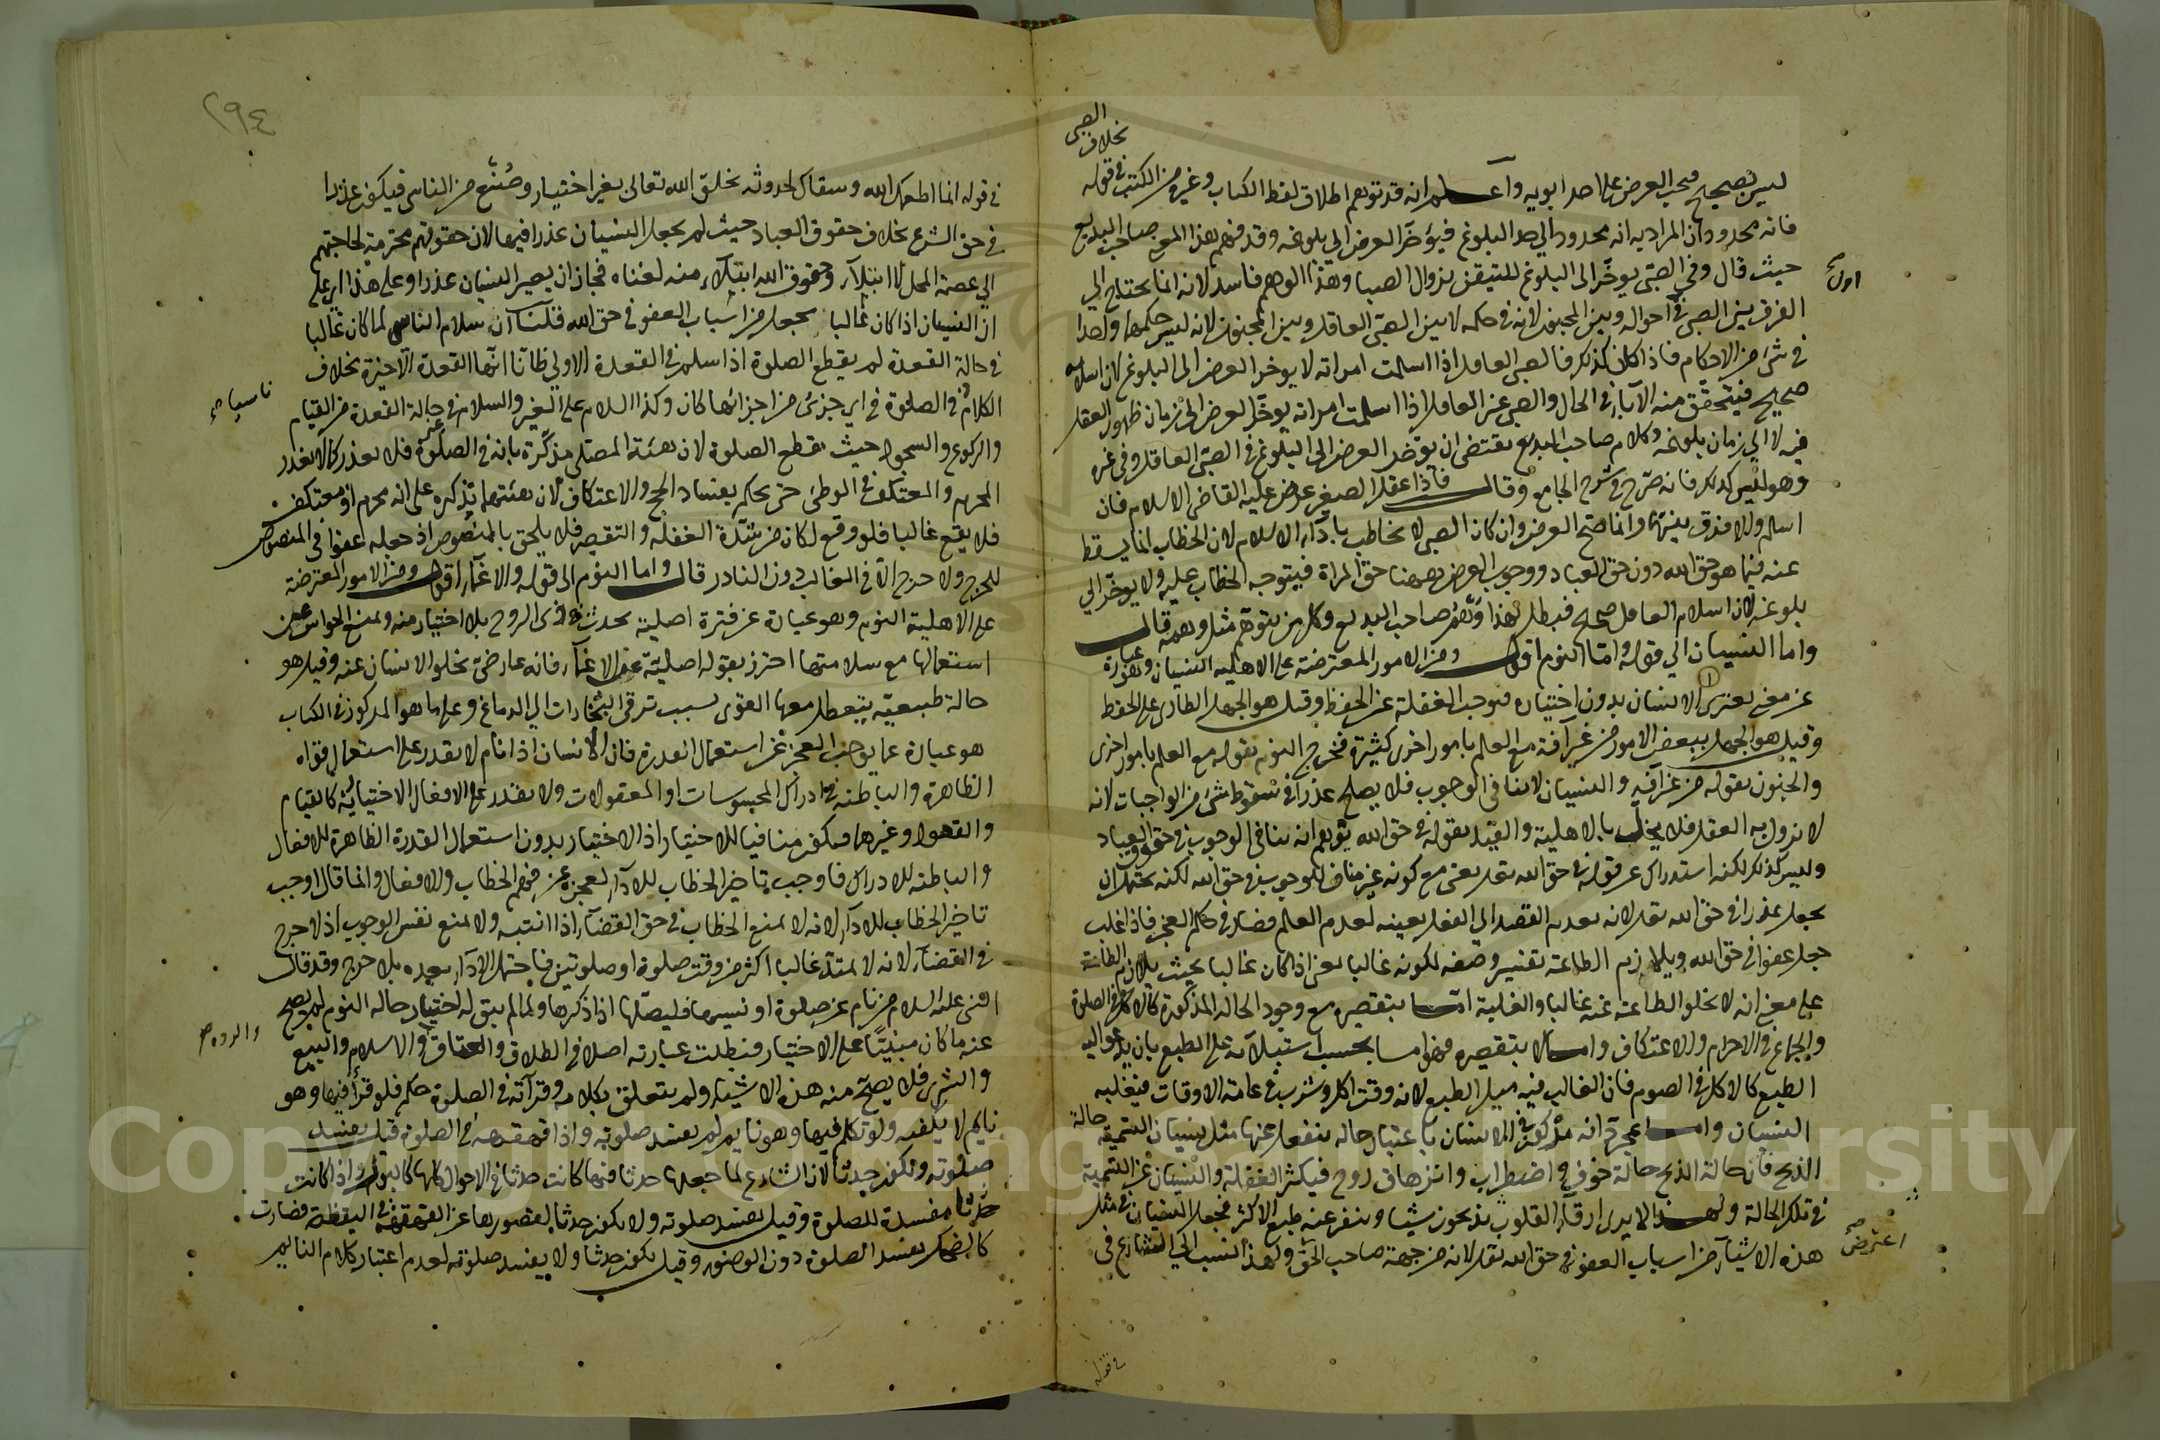 الصبى
بخلاف
ليس بصحيح فيجب العرض على احد ابويه واعلم انه قد توهم اطلاق لفظ الكتاب وغيره من الكتب فى قوله
فانه محدود ان المراد به انه محدود الى حد البلوغ فيؤخر العرض الى بلوغه وقد فهم هذا المعنى صاحب البديع
حيث قال وفى الصبى يوخر الى البلوغ للتيقن بزوال الصبا وهذا الوهم فاسد لانه انما يحتاج الى
الفرق بين الصبى فى احواله وبين المجنون لانه فى حكمه لا بين الصبى العاقل وبين المجنون لانه ليس حكمهما واحدا
فى شئ من الاحكام فاذا كان كذلك فالصبى العاقل اذا اسلمت امراته لا يوخر العرض الى البلوغ لان اسلامه
صحيح فيتحقق منه الاباء فى الحال والصبى غير العاقل اذا اسلمت امراته يوخر العرض الى زمان ظهور العقل
فيه لا الى زمان بلوغه وكلام صاحب البديع يقتضى ان يؤخر العرض الى البلوغ فى الصبى العاقل وفى غيره
وهو ليس كذلك فانه صرح فى شرح الجامع وقال فاذا عقل الصغير عرض عليه القاضى الاسلام فان
اسلم والا فرق بينهما وانما صح العرض وان كان الصبى لا يخاطب باداء الاسلام لان الخطاب انما يسقط
عنه فيما هو حق الله دون حق العباد ووجوب العرض ههنا حق المراة فيتوجه الخطاب عليه ولا يوخر الى
بلوغه لان اسلام العاقل صحيح فبطل بهذا وهم صاحب البديع وكل من يتوهم مثل وهمه قال
واما النسيان الى قوله واما النوم اقول ومن الامور المعترضة على الاهلية النسيان وهو عبارة
عن معنى يعترى الانسان بدون اختياره فيوجب الغفلة عن الحفظ وقيل هو الجهل الطارى على الحفظ
وقيل هو الجهل ببعض الامور من غير آفة مع العلم بامور اخرى كثيرة فخرج النوم بقوله مع العلم بامور اخرى
والجنون بقوله من غير آفة والنسيان لا ينافى الوجوب فلا يصلح عذرا فى سقوط شئ من الواجبات لانه
لا يزول به العقل فلا يخل بالاهلية والقيد بقوله فى حق الله يوهم انه ينافى الوجوب فى حقوق العباد
وليس كذلك لكنه استدراك عن قوله فى حق الله تعلى يعنى مع كونه غير مناف للوجوب فى حق الله لكنه يحتمل ان
يجعل عذرا فى حق الله تعلى لانه يعدم القصد الى الفعل بعينه لعدم العلم فصار فى حكم العجز فاذا غلب
جعل عفوا فى حق الله ويلازم الطاعة تفسير وصفه لكونه غالبا يعنى اذا كان غالبا بحيث يلازم الطاعة
على معنى انه لا يخلو الطاعة عنه غالبا والغلبة اما بتقصيره مع وجود الحالة المذكورة كالاكل فى الصلوة
والجماع فى الاحرام والاعتكاف واما لا بتقصيره فهو اما بحسب استيلائه على الطبع بان يدعو اليه
الطبع كالاكل فى الصوم فان الغالب فيه ميل الطبع لانه وقت اكل وشرب فى عامة الاوقات فيغلبه
النسيان واما عجزا انه مركوز فى الانسان باعتبار حاله ينفعل عنها مثل نسيان التسمية حالة
الذبح فان حالة الذبح حالة خوف واضطراب وانزهاق روح فيكثر الغفلة والنسيان عن التسمية
فى تلك الحالة ولهذا لا يرى ارقاء القلوب يذبحون شيا وينفر عنه طبع الاكثر فجعل النسيان فى مثل
هذه الاشياء من اسباب العفو فى حق الله تعلى لانه من جهة صاحب الحق ولهذا نسب الى الشارع فى
اعترض
فى قوله
٢٩٤
فى قوله انما اطعمك الله وسقاك لحدوثه بخلق الله تعالى بغير اختيار وصنع من الناسى فيكون عذرا
فى حق الشرع بخلاف حقوق العباد حيث لم يجعل النسيان عذرا فيها لان حقوقهم محترمة لحاجتهم
الى عصمة المحل لا ابتلاء وحقوق الله ابتلاء منه لغناه فجاز ان يصير النسيان عذرا وعلى هذا اى على
ان النسيان اذا كان غالبا يجعل من اسباب العفو فى حق الله قلنا ان سلام الناسى لما كان غالبا
فى حالة القعدة لم يقطع الصلوة اذا سلم فى القعدة الاولى ظانا انها القعدة الاخيرة بخلاف
الكلام فى الصلوة فى اى جزئ من اجزائها كان وكذا السلام على الغير والسلام فى حالة القعدة من القيام
ناسيا صح
والركوع والسجود حيث يقطع الصلوة لان هيئة المصلى مذكرة بانه فى الصلوة فلا يعذر كالا يعذر
المحرم والمعتكف فى الوطئ حتى يحكم بفساد الحج والاعتكاف لان هيئتهما تذكره على انه محرم او معتكف
فلا يقع غالبا فلو وقع لكان من شدة الغفلة والتقصير فلا يلحق بالمنصوص اذ جعله عفوا فى المنصوص
للحرج ولا حرج الا فى الغالب دون النادر قال واما النوم الى قوله والاغماء اقول ومن الامور المعترضة
على الاهلية النوم وهو عبارة عن فترة اصلية تحدث فى ذى الروح بلا اختيار منه ويمنع الحواس عن
استعمالها مع سلامتها احترز بقوله اصلية عن الاغماء فانه عارض يخلو الانسان عنه وقيل هو
حالة طبيعية يتعطل معها القوى بسبب ترقى البخارات الى الدماغ وعلى ما هو المذكور فى الكتاب
هو عبارة عما يوجب العجز عن استعمال القدرة فان الانسان اذا نام لا يقدر على استعمال قواه
الظاهرة والباطنة فى ادراك المحسوسات او المعقولات ولا يقدر على الافعال الاختيارية كالقيام
والقعود وغيرها فيكون منافيا للاختيار اذ الاختيار بدون استعمال القدرة الظاهرة للافعال
والباطنة للادراك فاوجب تاخير الخطاب للاداء لعجزه عن فهم الخطاب والافعال وانما قال اوجب
تاخير الخطاب للاداء لانه لا يمنع الخطاب فى حق القضاء اذا انتبه ولا يمنع نفس الوجوب اذ لا حرج
فى القضاء لانه لا يمتد غالبا اكثر من وقت صلوة او صلوتين فاحتمل الاداء بعده بلا حرج وقد قال
النبى عليه السلام من نام عن صلوة او نسيها فليصلها اذا ذكرها ولما لم يبق له اختيار حالة النوم لم يصح
عنه ما كان مبنيا على الاختيار فبطلت عبارته اصلا فى الطلاق والعتاق والاسلام والبيع
والردة صح
والشرى فلا يصح منه هذه الاشياء ولم يتعلق بكلامه وقرآته فى الصلوة حكم فلو قرأ فيها وهو
نايم لا يكفيه ولو تكلم فيها وهو نايم لم يفسد صلوته واذا قهقهه فى الصلوة قيل يفسد
صلوته ويكون حدثا لان الشارع لما جعلها حدثا فيها كانت حدثا فى الاحوال كلها كالبول واذا كانت
حدثا مفسدة للصلوة وقيل يفسد صلوته ولا يكون حدثا لقصورها عن القهقهة فى اليقظة فصارت
كالضحك يفسد الصلوة دون الوضوء وقيل يكون حدثا ولا يفسد صلوته لعدم اعتبار كلام النايم
Copyright © King Saud University